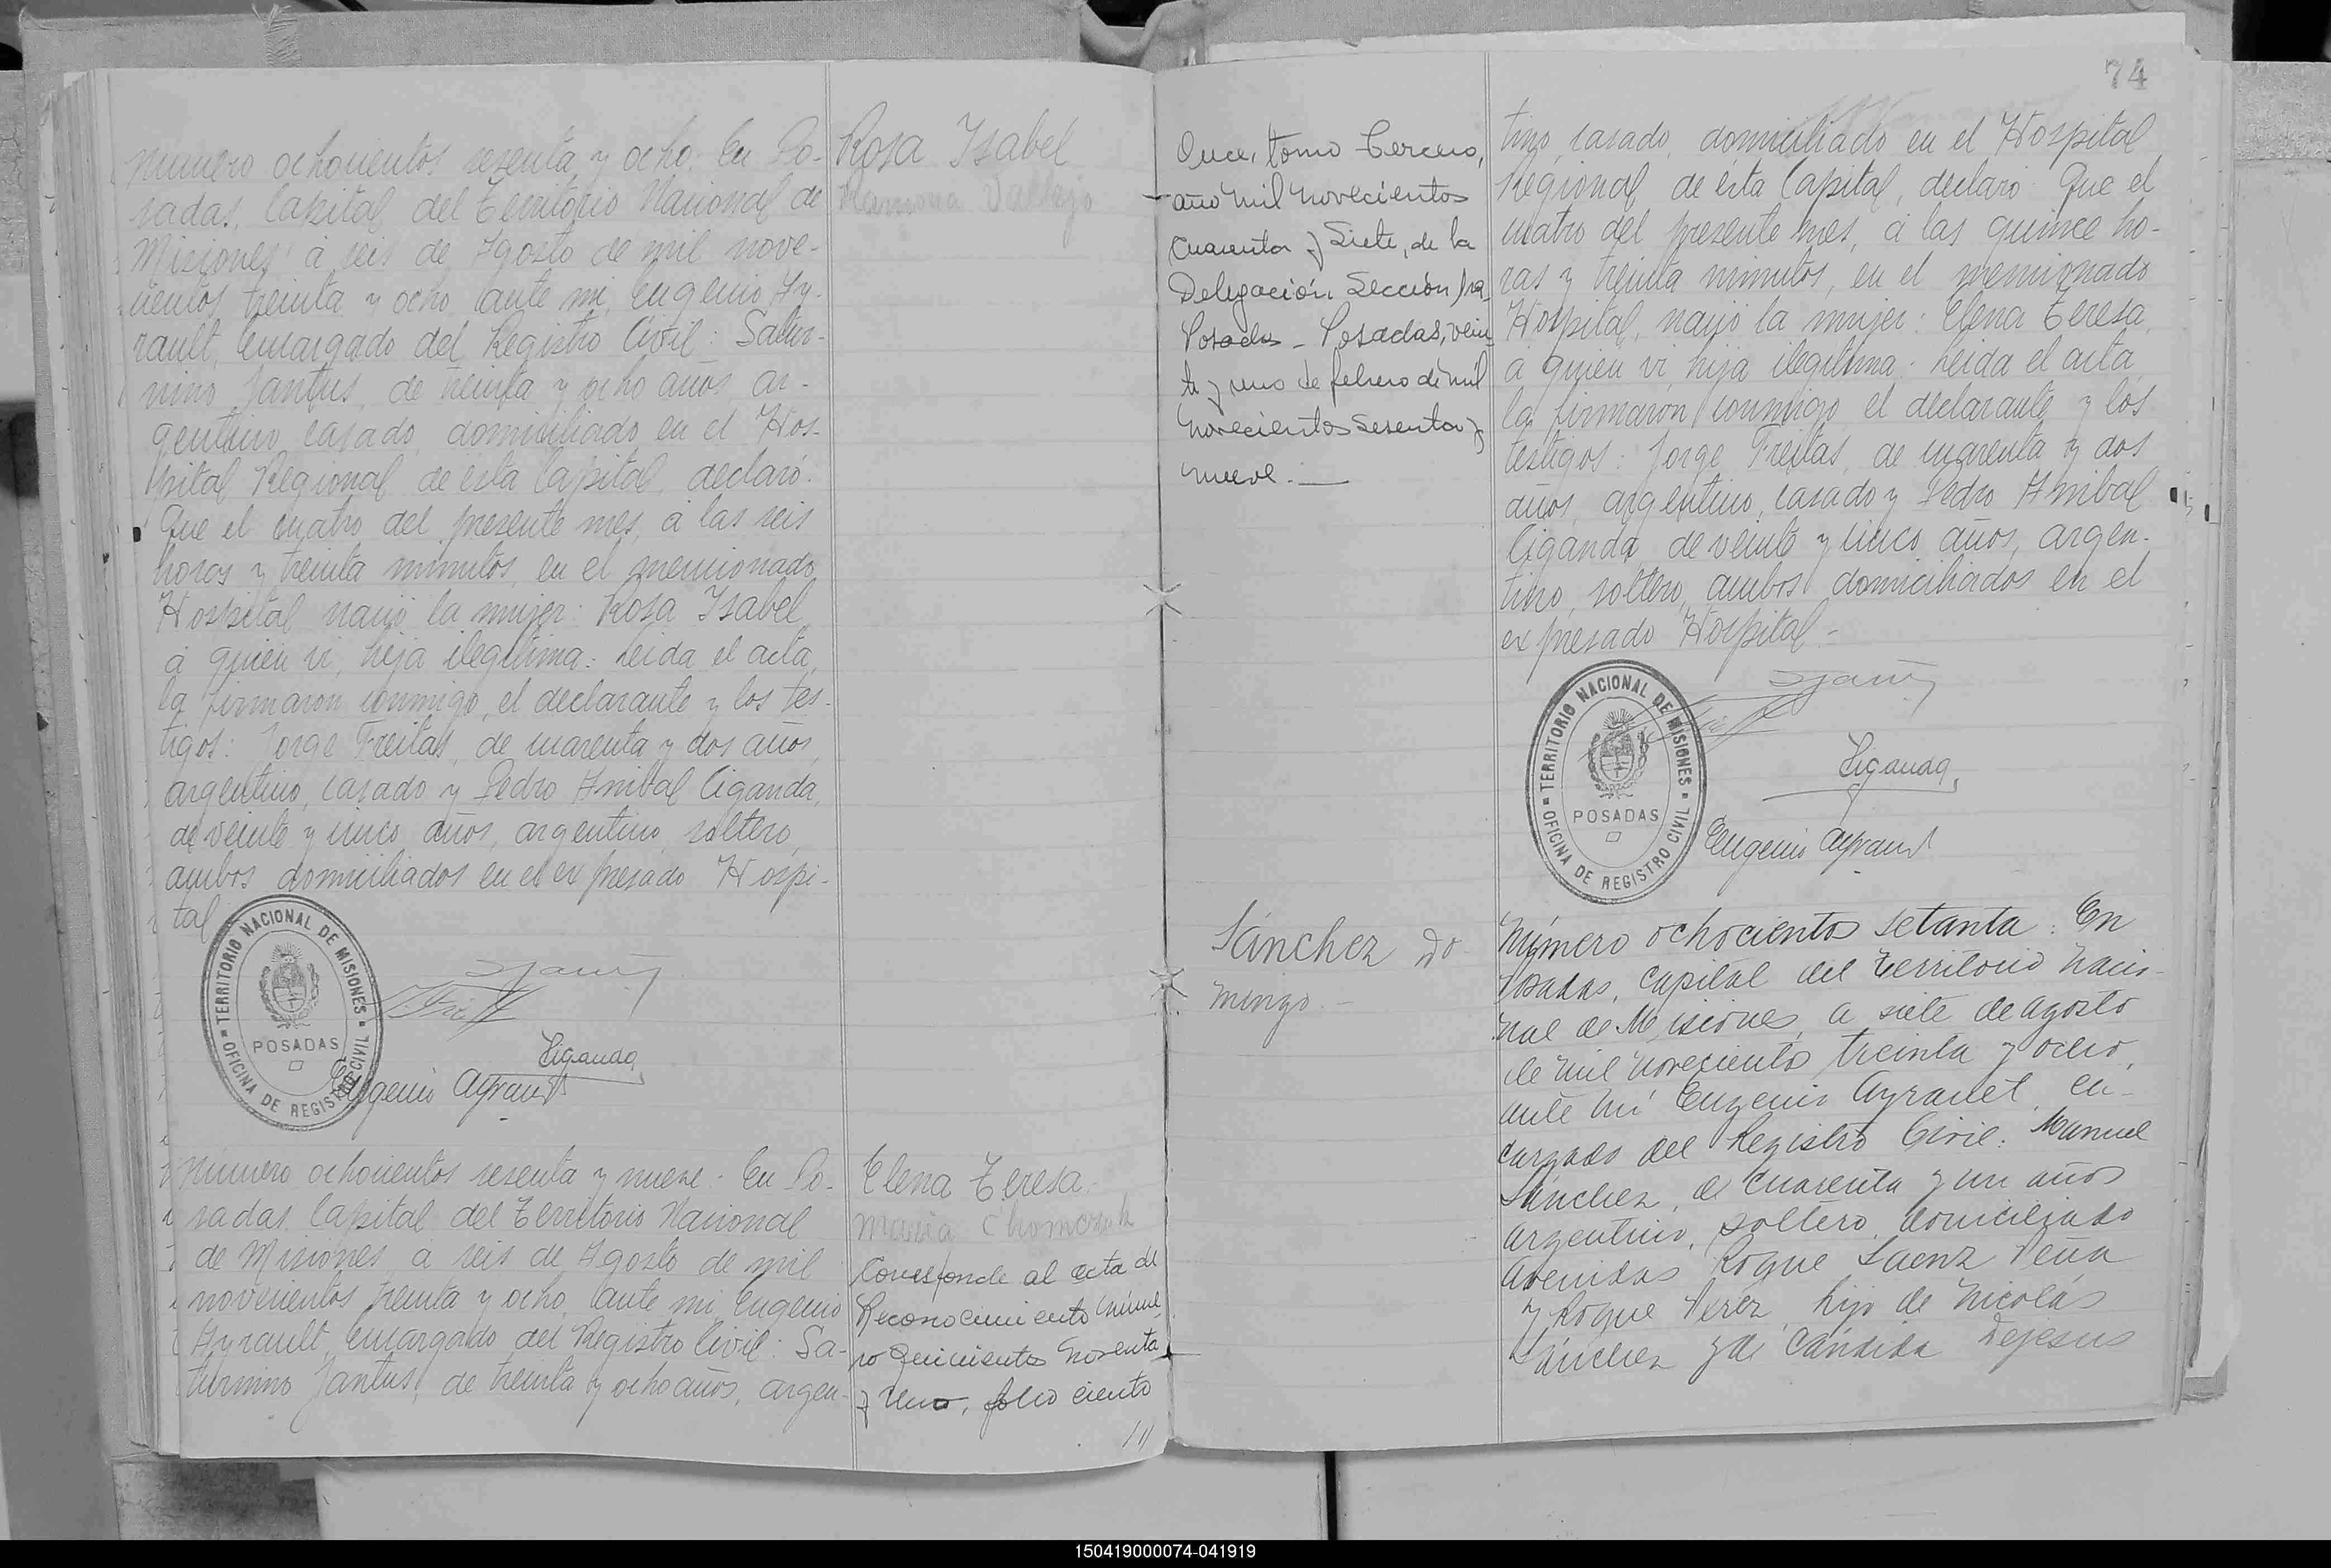 número ochocientos sesenta y ocho: En Po-
sadas, Capital del Territorio Nacional de
Misiones a seis de Agosto de mil nove-
cientos treinta y ocho ante mi, Eugenio Ay-
rault, Encargado del Registro Civil: Satur-
nino Jantus, de treinta y ocho años, ar-
gentino, casado, domiciliado en el Hos-
pital Regional de esta Capital, declaró:
Que el cuatro del presente mes, a las seis
horas y treinta minutos, en el mencionado
Hospital nació la mujer: Rosa Isabel
a quien vi, hija ilegítima: Leida el acta,
la firmaron conmigo, el declarante y los tes-
tigos: Jorge Freitas, de cuarenta y dos años,
argentino, casado y Pedro Anibal Ciganda,
de veinte y cinco años, argentino, soltero,
ambos domiciliados en el expresado Hospi-
tal
TERRITORIO NACIONAL DE MISIONES
POSADAS
OFICINA DE REGISTRO CIVIL
Ciganda
Eugenio Ayrault
Rosa Isabel
Ramona Vallejo
Número ochocientos sesenta y nueve: En Po-
sadas, Capital del Territorio Nacional
de Misiones a seis de Agosto de mil
novecientos treinta y ocho, ante mi, Eugenio
Ayrault, Encargado del Registro Civil: Sa-
turnino Jantus, de treinta y ocho años, argen-
Elena Teresa
Maria
Corresponde al acta de
Reconocimiento núme-
ro quinientos noventa
y uno, folio ciento
///
74
Once, tomo Tercero,
año mil novecientos
cuarenta y siete, de la
Delegación Sección 1ra
Posadas - Posadas, vein-
te y uno de febrero de mil
novecientos sesenta y
nueve.-
tino, casado, domiciliado en el Hospital
Regional de esta Capital, declaró: Que el
cuatro del presente mes, a las quince ho-
ras y treinta minutos, en el mencionado
Hospital, nació la mujer: Elena Teresa,
a quien vi, hija ilegítima: Leida el acta
la firmaron conmigo el declarante y los
testigos: Jorge Freitas, de cuarenta y dos
años, argentino, casado y Pedro Anibal
Ciganda, de veinte y cinco años, argen-
tino, soltero, ambos domiciliados en el
expresado Hospital -
TERRITORIO NACIONAL DE MISIONES
POSADAS
OFICINA DE REGISTRO CIVIL
Ciganda
Eugenio Ayrault
Sánchez Do-
mingo.-
Número ochocientos setanta: En
Posadas, Capital del Territorio Nacio-
nal de Misiones, a siete de agosto
de mil novecientos treinta y ocho,
ante mí Eugenio Ayrault, en-
cargado del Registro Civil: Manuel
Sánchez, de cuarenta y un años
argentino, soltero, domiciliado
avenidas Roque Saenz Peña
y Roque Perez, hijo de Nicolás
Sánchez y de Cándida Dejesus
150419000074-041919